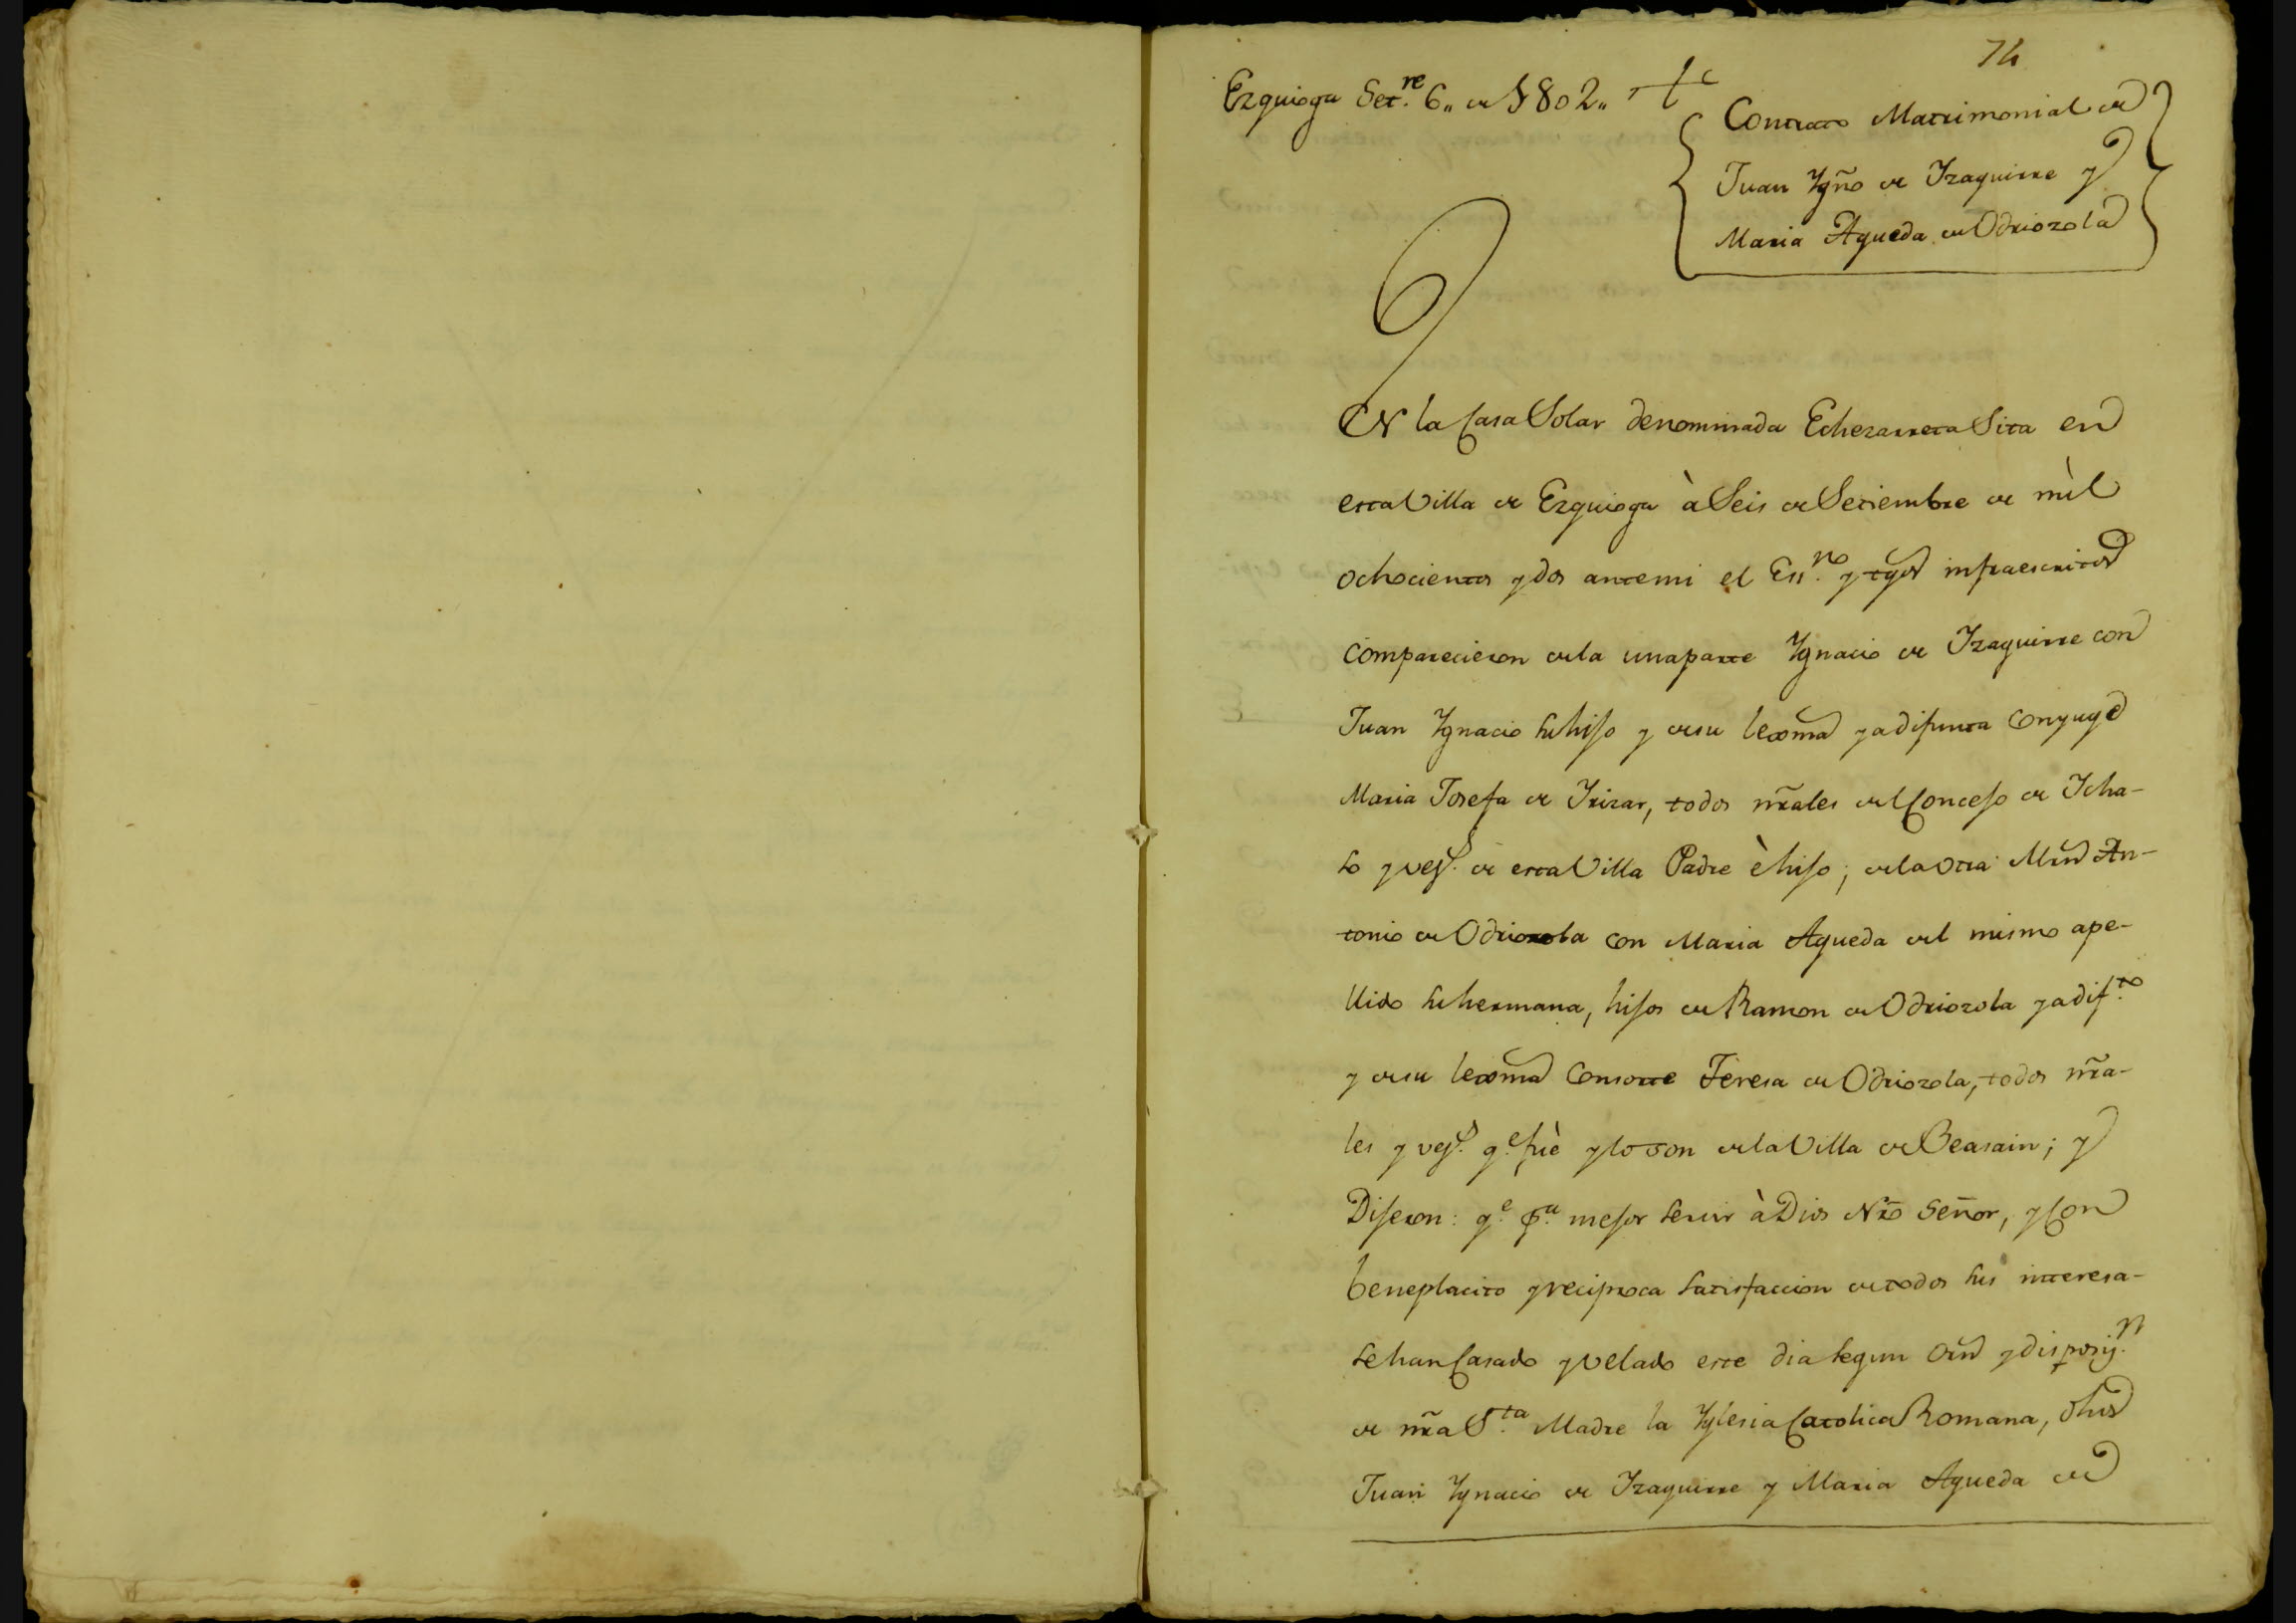 74
Ezquioga Set.re 6,, de 1802,,
Contrato Matrimonial de
Juan Ygño de Yzaguirre y
Maria Agueda de Odriozola
EN la Casa Solar denominada Echezarreta Sita en
esta Villa de Ezquioga à Seis de Setiembre de mìl
ochocientos y dos antemi el Ess.no y tgos infraescritos
comparecieron de la una parte Ygnacio de Yzaguirre con
Juan Ygnacio su hijo y de su lexma ya difunta Conyuge
Maria Josefa de Yrizar, todos nrales del Concejo de Ycha-
so y vez.s de esta Villa Padre è hijo; de la otra Mrn An-
tonio de Odriozola con Maria Agueda del mismo ape-
llido su hermana, hijos de Ramon de Odriozola ya dif.to
y de su lexma Consorte Teresa de Odriozola, todos nra-
les y vez.s q.e fuè y lo son de la Villa de Beasain; y
Dijeron: q.e p.a mejor servir à Dios Nrõ Señor, y Con
beneplacito y reciproca satisfaccion de todos sus interesa-
se han Casado y velado este dia segun orn y disposiz.n
de nrã S.ta Madre la Yglesia Catolica Romana, dhos
Juan Ygnacio de Yzaguirre y Maria Agueda de